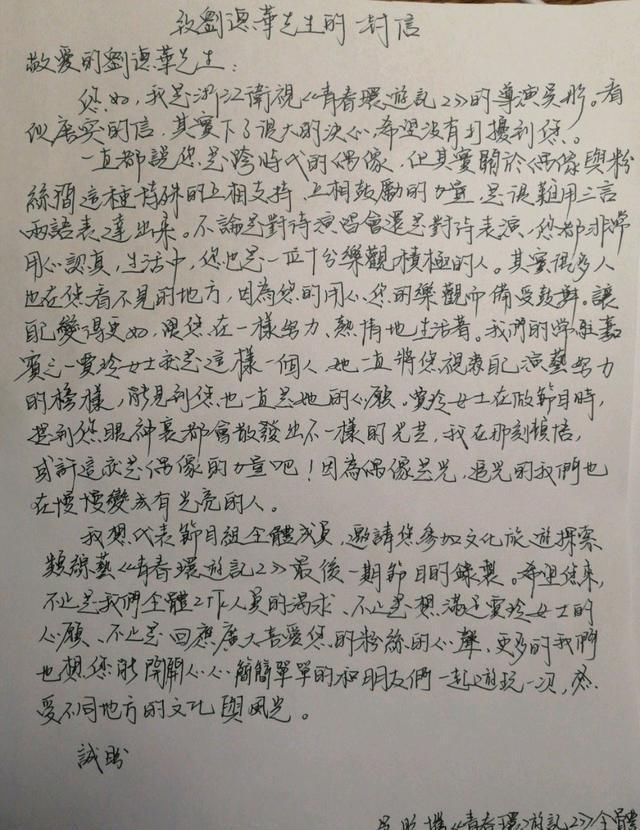 致劉德華先生的一封信
敬愛的劉德華先生：
您好，我是浙江衛視《青春環遊記2》的導演吳彤。看
似唐突的信，其實下了很大的決心，希望沒有打擾到您。
一直都說您是跨時代的偶像，但其實關於偶像與粉
絲間這種特殊的互相支持、互相鼓勵的力量，是很難用三言
兩語表達出來。不論是對待演唱會還是對待表演，您都非常
用心認真，生活中，您也是一位十分樂觀積極的人。其實很多人
也在您看不見的地方，因為您的用心您的樂觀而備受鼓舞。讓
自己變得更好，跟您在一樣努力、熱情地生活著。我們的常駐嘉
賓之一賈玲女士就是這樣一個人，她一直將您視為自己演藝努力
的榜樣，能見到您也一直是她的心願。賈玲女士在做節目時，
提到您眼神裏都會散發出不一樣的光芒，我在那刻頓悟，
或許這就是偶像的力量吧！因為偶像是光，追光的我們也
在慢慢變成有光亮的人。
我想代表節目組全體成員，邀請您參加文化旅遊探索
類綜藝《青春環遊記2》最後一期節目的錄製。希望您來，
不止是我們全體工作人員的渴求、不止是想滿足賈玲女士的
心願、不止是回應廣大喜愛您的粉絲的心聲，更多的我們
也想您能開開心心簡簡單單的和朋友們一起遊玩一次，感
受不同地方的文化與風光。
誠盼
《青春環遊記2》全體